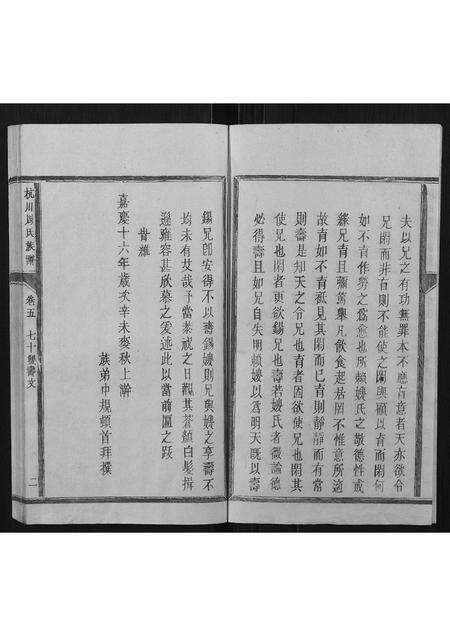 夫以兄之有功無罪本不應盲意者天亦欲令
兄閒而非盲則不能使之閒與顧以盲而閒何
如不盲作勞之爲愈也所賴嫂氏之敬德性或
緣兄盲且彌篤舉凡飲食起居罔不惟意所適
故盲如不盲祗見其閒而已盲則靜靜而有常
則壽是知天之令兄也盲者固欲使兄也閒其
使兄也閒者更欲錫兄也壽若嫂氏者微論德
必得壽且如兄自失明賴嫂以爲明天既以壽
錫兄卽安得不以壽錫嫂則兄與嫂之享壽不
均未有艾哉予當泰祺之日羡其蒼顏白髮揖
遜雍容甚欣慕之爰述此以當前圖之跋
皆
嘉慶十六年歲次辛未麥秋上澣
族弟中規頓首拜撰
杭川周氏族譜
卷五
七十雙壽文
二